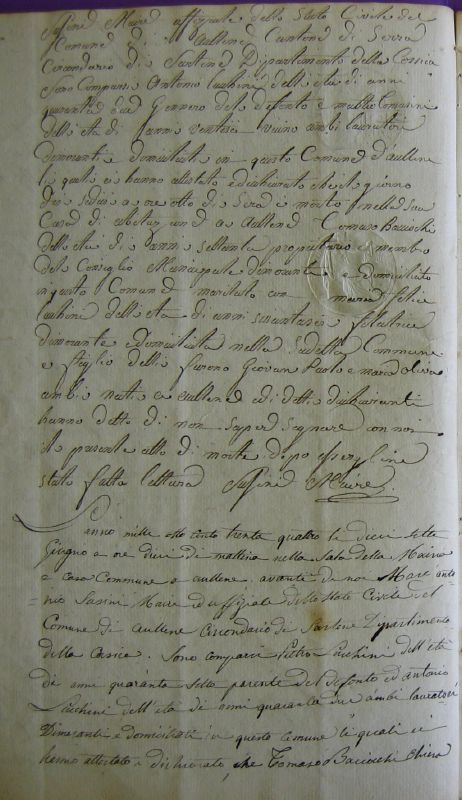 Susini Maire uffiziale dello Stato Civile del
Comune di Aullene Cantone di Serra
Circondario di Sartene Dipartimento della Corsica
Sono Comparsi Antonio Lucchini dell'età di anni
quaranta due Gennero del defonto e
dell'età di anni ventisei vicino ambi lavoratori
Dimoranti e Domiciliati in questo Comune d'aullene
li quali ci hanno attestato e dichiarato che il giorno
dieci sedici a ore otto di sera è morto nella sua
Casa di abitazione a Aullene Tomaso Baciochi
dell'età di anni settanta proprietario e membro
del Consiglio Municipale dimorante e domiciliato
in questo Comune maritato con maria felice
Lucchini dell'età di anni sessantasei filatrice
dimorante e Domiciliata nella Sudetta Commune
e figlio delli furono Giovan Paolo e maria Oliva
ambi nati a aullene ed i detti dichiaranti
hanno detto di non saper segnare con noi
il presente atto di morte dopo essergline
stato fatta lettura Susini Maire
L'anno mille otto cento trenta quattro li dieci sette
Giugno a ore dieci di mattina nella Sala della Mairia
e casa Commune a aullene avanti di noi Marc'anto
=nio Susini Maire ed uffiziale dello Stato Civile del
Comune di Aullene Circondario di Sartene Dipartimento
della Corsica. Sono comparsi Pietro Lucchini dell'età
di anni quaranta sette parente del defonto e d'antonio
Lucchini dell'età di anni quaranta due ambi lavoratori
Dimoranti e domiciliati in questo Comune li quali ci
hanno attestato e dichiarato, che Tomaso Baciochi